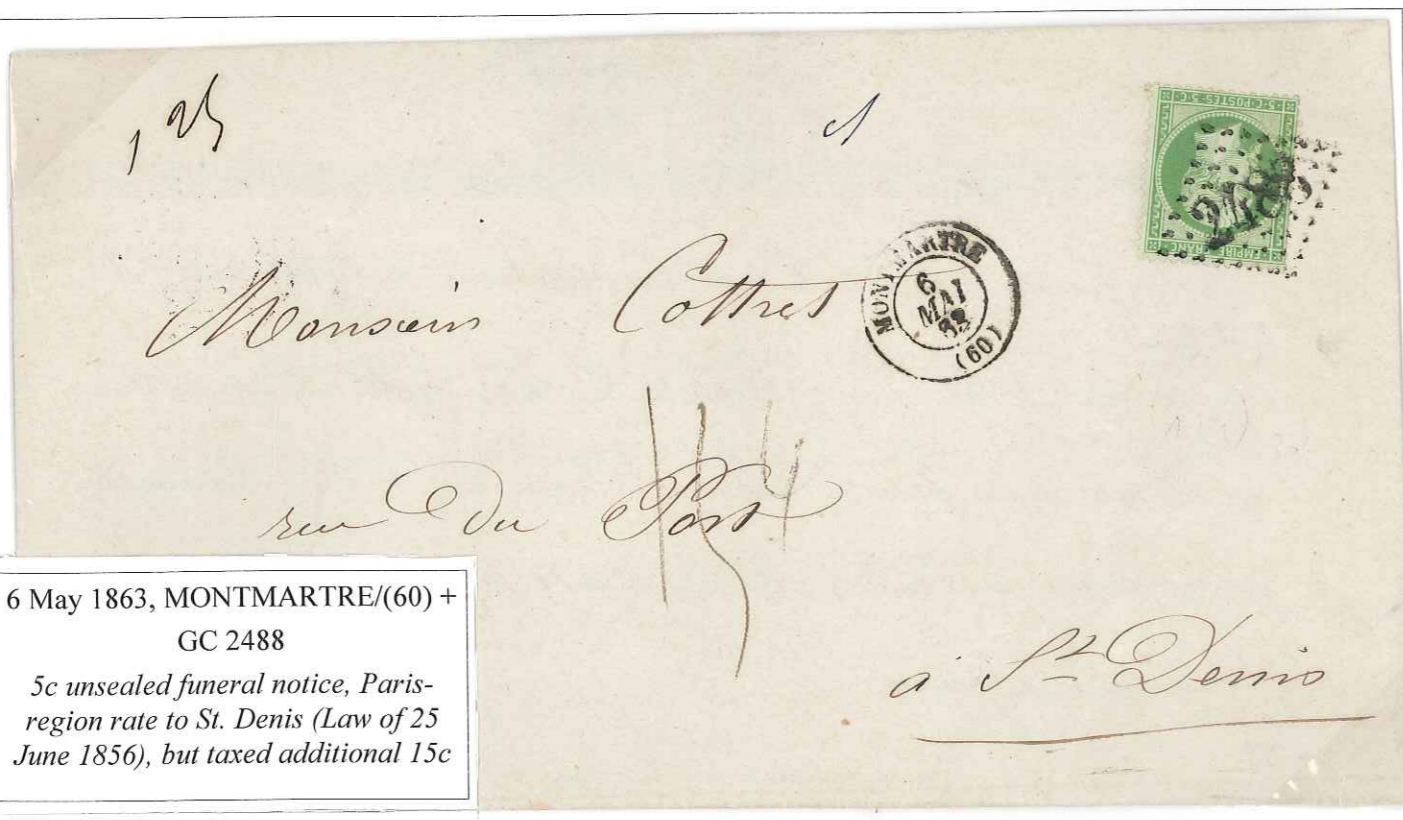 1 25
5·C·POSTES·5·C
EMPIRE FRANC
2488
MONTMARTRE
6
MAI
(60)
Monsieur Cottret
rue Du Port
à St Denis
6 May 1863, MONTMARTRE/(60) +
GC 2488
5c unsealed funeral notice, Paris-
region rate to St. Denis (Law of 25
June 1856), but taxed additional 15c